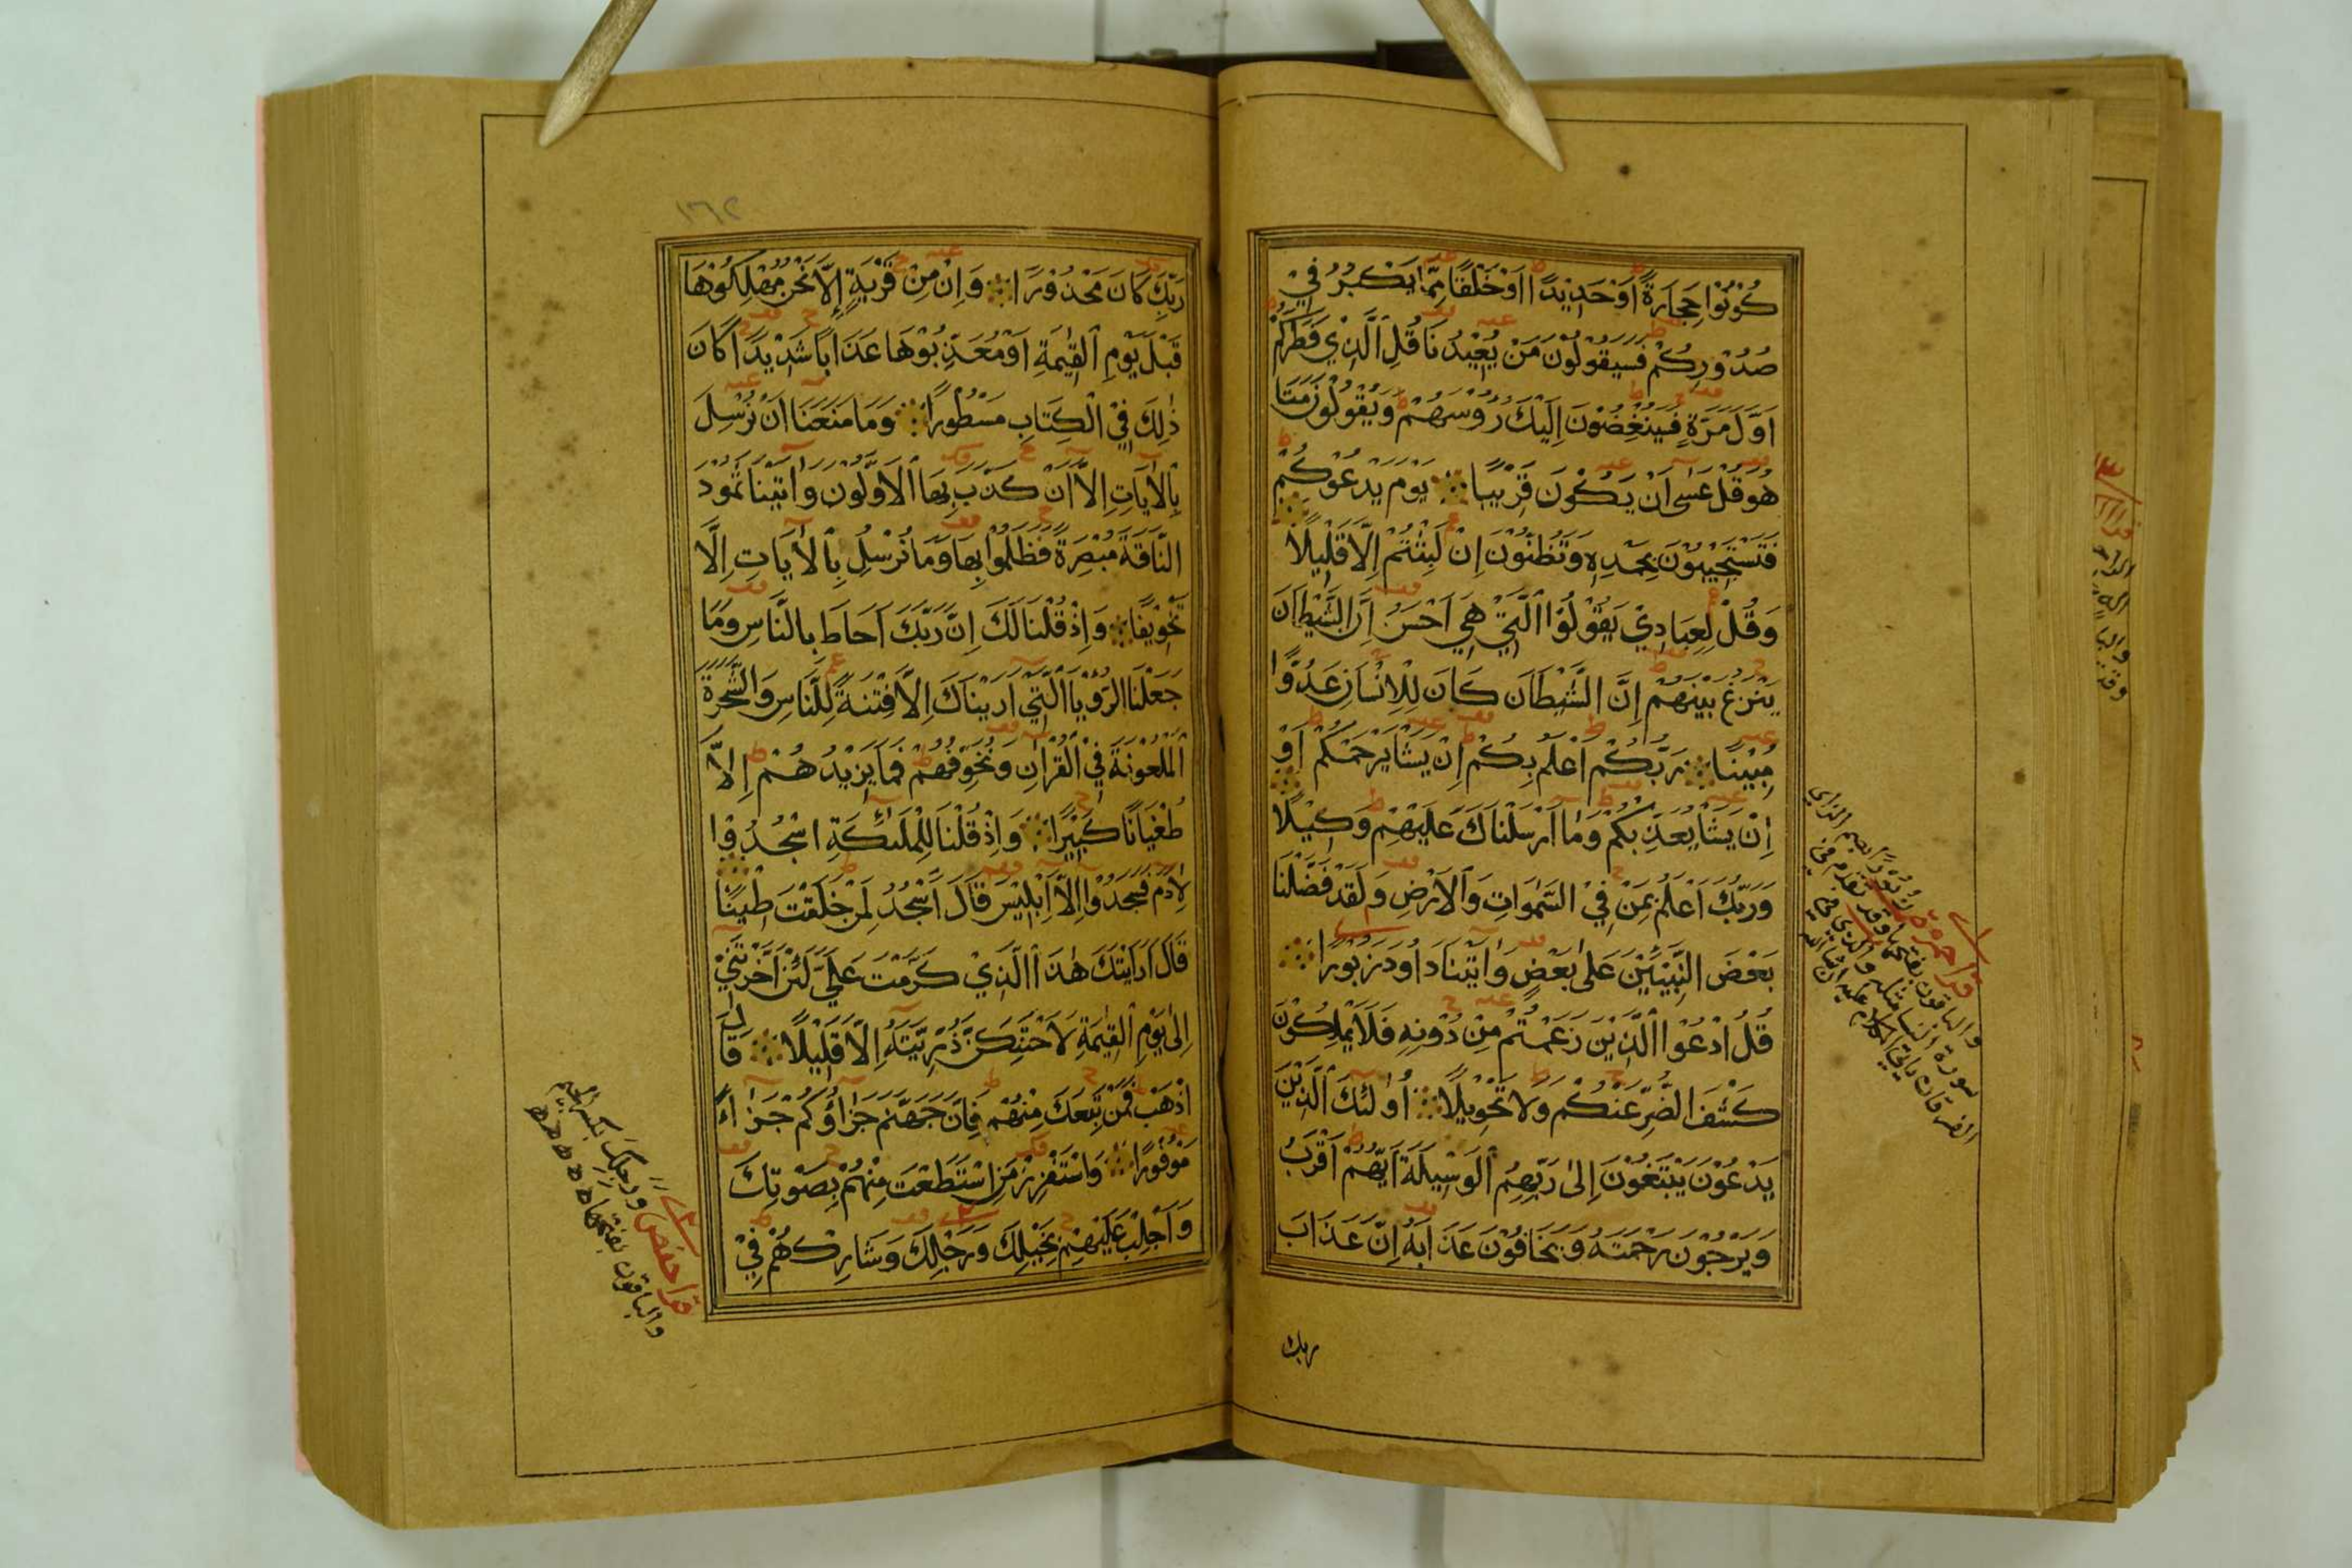 كُوْنُوْا حِجَارَةً اَوْحَدِيْدًا اَوْخَلْقًا مِمَّا يَكْبُرُ فِيْ
صُدُوْرِكُمْ فَسَيَقُوْلُوْنَ مَنْ يُعِيْدُنَا قُلِ الَّذِيْ فَطَرَكُمْ
اَوَّلَ مَرَّةٍ فَسَيُنْغِضُوْنَ اِلَيْكَ رُؤُسَهُمْ وَيَقُوْلُوْنَ مَتٰى
هُوَ قُلْ عَسٰى اَنْ يَكُوْنَ قَرِيْبًا يَوْمَ يَدْعُوْكُمْ
فَتَسْتَجِيْبُوْنَ بِحَمْدِهٖ وَتَظُنُّوْنَ اِنْ لَبِثْتُمْ اِلَّا قَلِيْلًا
وَقُلْ لِعِبَادِيْ يَقُوْلُوْا الَّتِيْ هِيَ اَحْسَنُ اِنَّ الشَّيْطَانَ
يَنْزَغُ بَيْنَهُمْ اِنَّ الشَّيْطَانَ كَانَ لِلْاِنْسَانِ عَدُوًّا
مُبِيْنًا رَبُّكُمْ اَعْلَمُ بِكُمْ اِنْ يَشَا يَرْحَمْكُمْ اَوْ
اِنْ يَشَا يُعَذِّبْكُمْ وَمَا اَرْسَلْنَاكَ عَلَيْهِمْ وَكِيْلًا
وَرَبُّكَ اَعْلَمُ بِمَنْ فِيْ السَّمٰوَاتِ وَالْاَرْضِ وَلَقَدْ فَضَّلْنَا
بَعْضَ النَّبِيّٖنَ عَلٰى بَعْضٍ وَاٰتَيْنَا دَاوُدَ زَبُوْرًا
قُلِ ادْعُوْا الَّذِيْنَ زَعَمْتُمْ مِنْ دُوْنِهٖ فَلَا يَمْلِكُوْنَ
كَشْفَ الضُّرِّ عَنْكُمْ وَلَا تَحْوِيْلًا اُولٰئِكَ الَّذِيْنَ
يَدْعُوْنَ يَبْتَغُوْنَ اِلٰى رَبِّهِمُ الْوَسِيْلَةَ اَيُّهُمْ اَقْرَبُ
وَيَرْجُوْنَ رَحْمَتَهُ وَيَخَافُوْنَ عَذَابَهُ اِنَّ عَذَابَ
ربك
قرا حمزة زُبُوْرًا بضم الزاي
والباقون بفتحها وقد تقدم في
سورة النسا مثله والذي في
الفرقان ياتي الكلام عليه ان شا الله
١٦٢
رَبِّكَ كَانَ مَحْذُوْرًا وَاِنْ مِنْ قَرْيَةٍ اِلَّا نَحْنُ مُهْلِكُوْهَا
قَبْلَ يَوْمِ الْقِيٰمَةِ اَوْ مُعَذِّبُوْهَا عَذَابًا شَدِيْدًا كَانَ
ذٰلِكَ فِيْ الْكِتَابِ مَسْطُوْرًا وَمَا مَنَعَنَا اَنْ نُرْسِلَ
بِالْاٰيَاتِ اِلَّا اَنْ كَذَّبَ بِهَا الْاَوَّلُوْنَ وَاٰتَيْنَا ثَمُوْدَ
النَّاقَةَ مُبْصِرَةً فَظَلَمُوْا بِهَا وَمَا نُرْسِلُ بِالْاٰيَاتِ اِلَّا
تَخْوِيْفًا وَاِذْ قُلْنَا لَكَ اِنَّ رَبَّكَ اَحَاطَ بِالنَّاسِ وَمَا
جَعَلْنَا الرُّؤْيَا الَّتِيْ اَرَيْنَاكَ اِلَّا فِتْنَةً لِلنَّاسِ وَالشَّجَرَةَ
الْمَلْعُوْنَةَ فِيْ الْقُرْاٰنِ وَنُخَوِّفُهُمْ فَمَا يَزِيْدُهُمْ اِلَّا
طُغْيَانًا كَبِيْرًا وَاِذْ قُلْنَا لِلْمَلٰئِكَةِ اسْجُدُوْا
لِاٰدَمَ فَسَجَدُوْا اِلَّا اِبْلِيْسَ قَالَ ءَاَسْجُدُ لِمَنْ خَلَقْتَ طِيْنًا
قَالَ اَرَاَيْتَكَ هٰذَا الَّذِيْ كَرَّمْتَ عَلَيَّ لَئِنْ اَخَّرْتَنِيْ
اِلٰى يَوْمِ الْقِيٰمَةِ لَاَحْتَنِكَنَّ ذُرِّيَّتَهُ اِلَّا قَلِيْلًا قَالَ
اذْهَبْ فَمَنْ تَبِعَكَ مِنْهُمْ فَاِنَّ جَهَنَّمَ جَزَاؤُكُمْ جَزَاءً
مَوْفُوْرًا وَاسْتَفْزِزْ مَنِ اسْتَطَعْتَ مِنْهُمْ بِصَوْتِكَ
وَاَجْلِبْ عَلَيْهِمْ بِخَيْلِكَ وَرَجِلِكَ وَشَارِكْهُمْ فِيْ
قرا حفص ورجلك بكسر الجيم
والباقون بفتحها